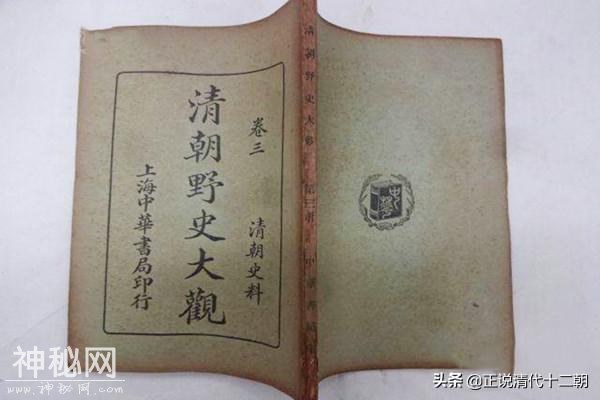 卷三
清朝史料
清朝野史大觀
上海中華書局印行
清朝野史大觀
中華
神秘网
www.shenmiwang.com
头条 @正说清代十二朝